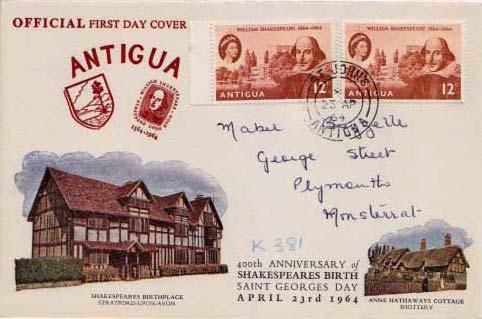 OFFICIAL FIRST DAY COVER
ANTIGUA
WILLIAM SHAKESPEARE
1564•1964
WILLIAM SHAKESPEARE 1564-1964
ANTIGUA 12c
WILLIAM SHAKESPEARE 1564-1964
ANTIGUA 12c
ST. JOHN'S
23 AP
64
ANTIGUA
Mabel
George Street
Plymouth
Monsterrat
K 381
400th ANNIVERSARY of
SHAKESPEARES BIRTH
SAINT GEORGES DAY
APRIL 23rd 1964
SHAKESPEARES BIRTHPLACE
STRATFORD-UPON-AVON
ANNE HATHAWAYS COTTAGE
SHOTTERY